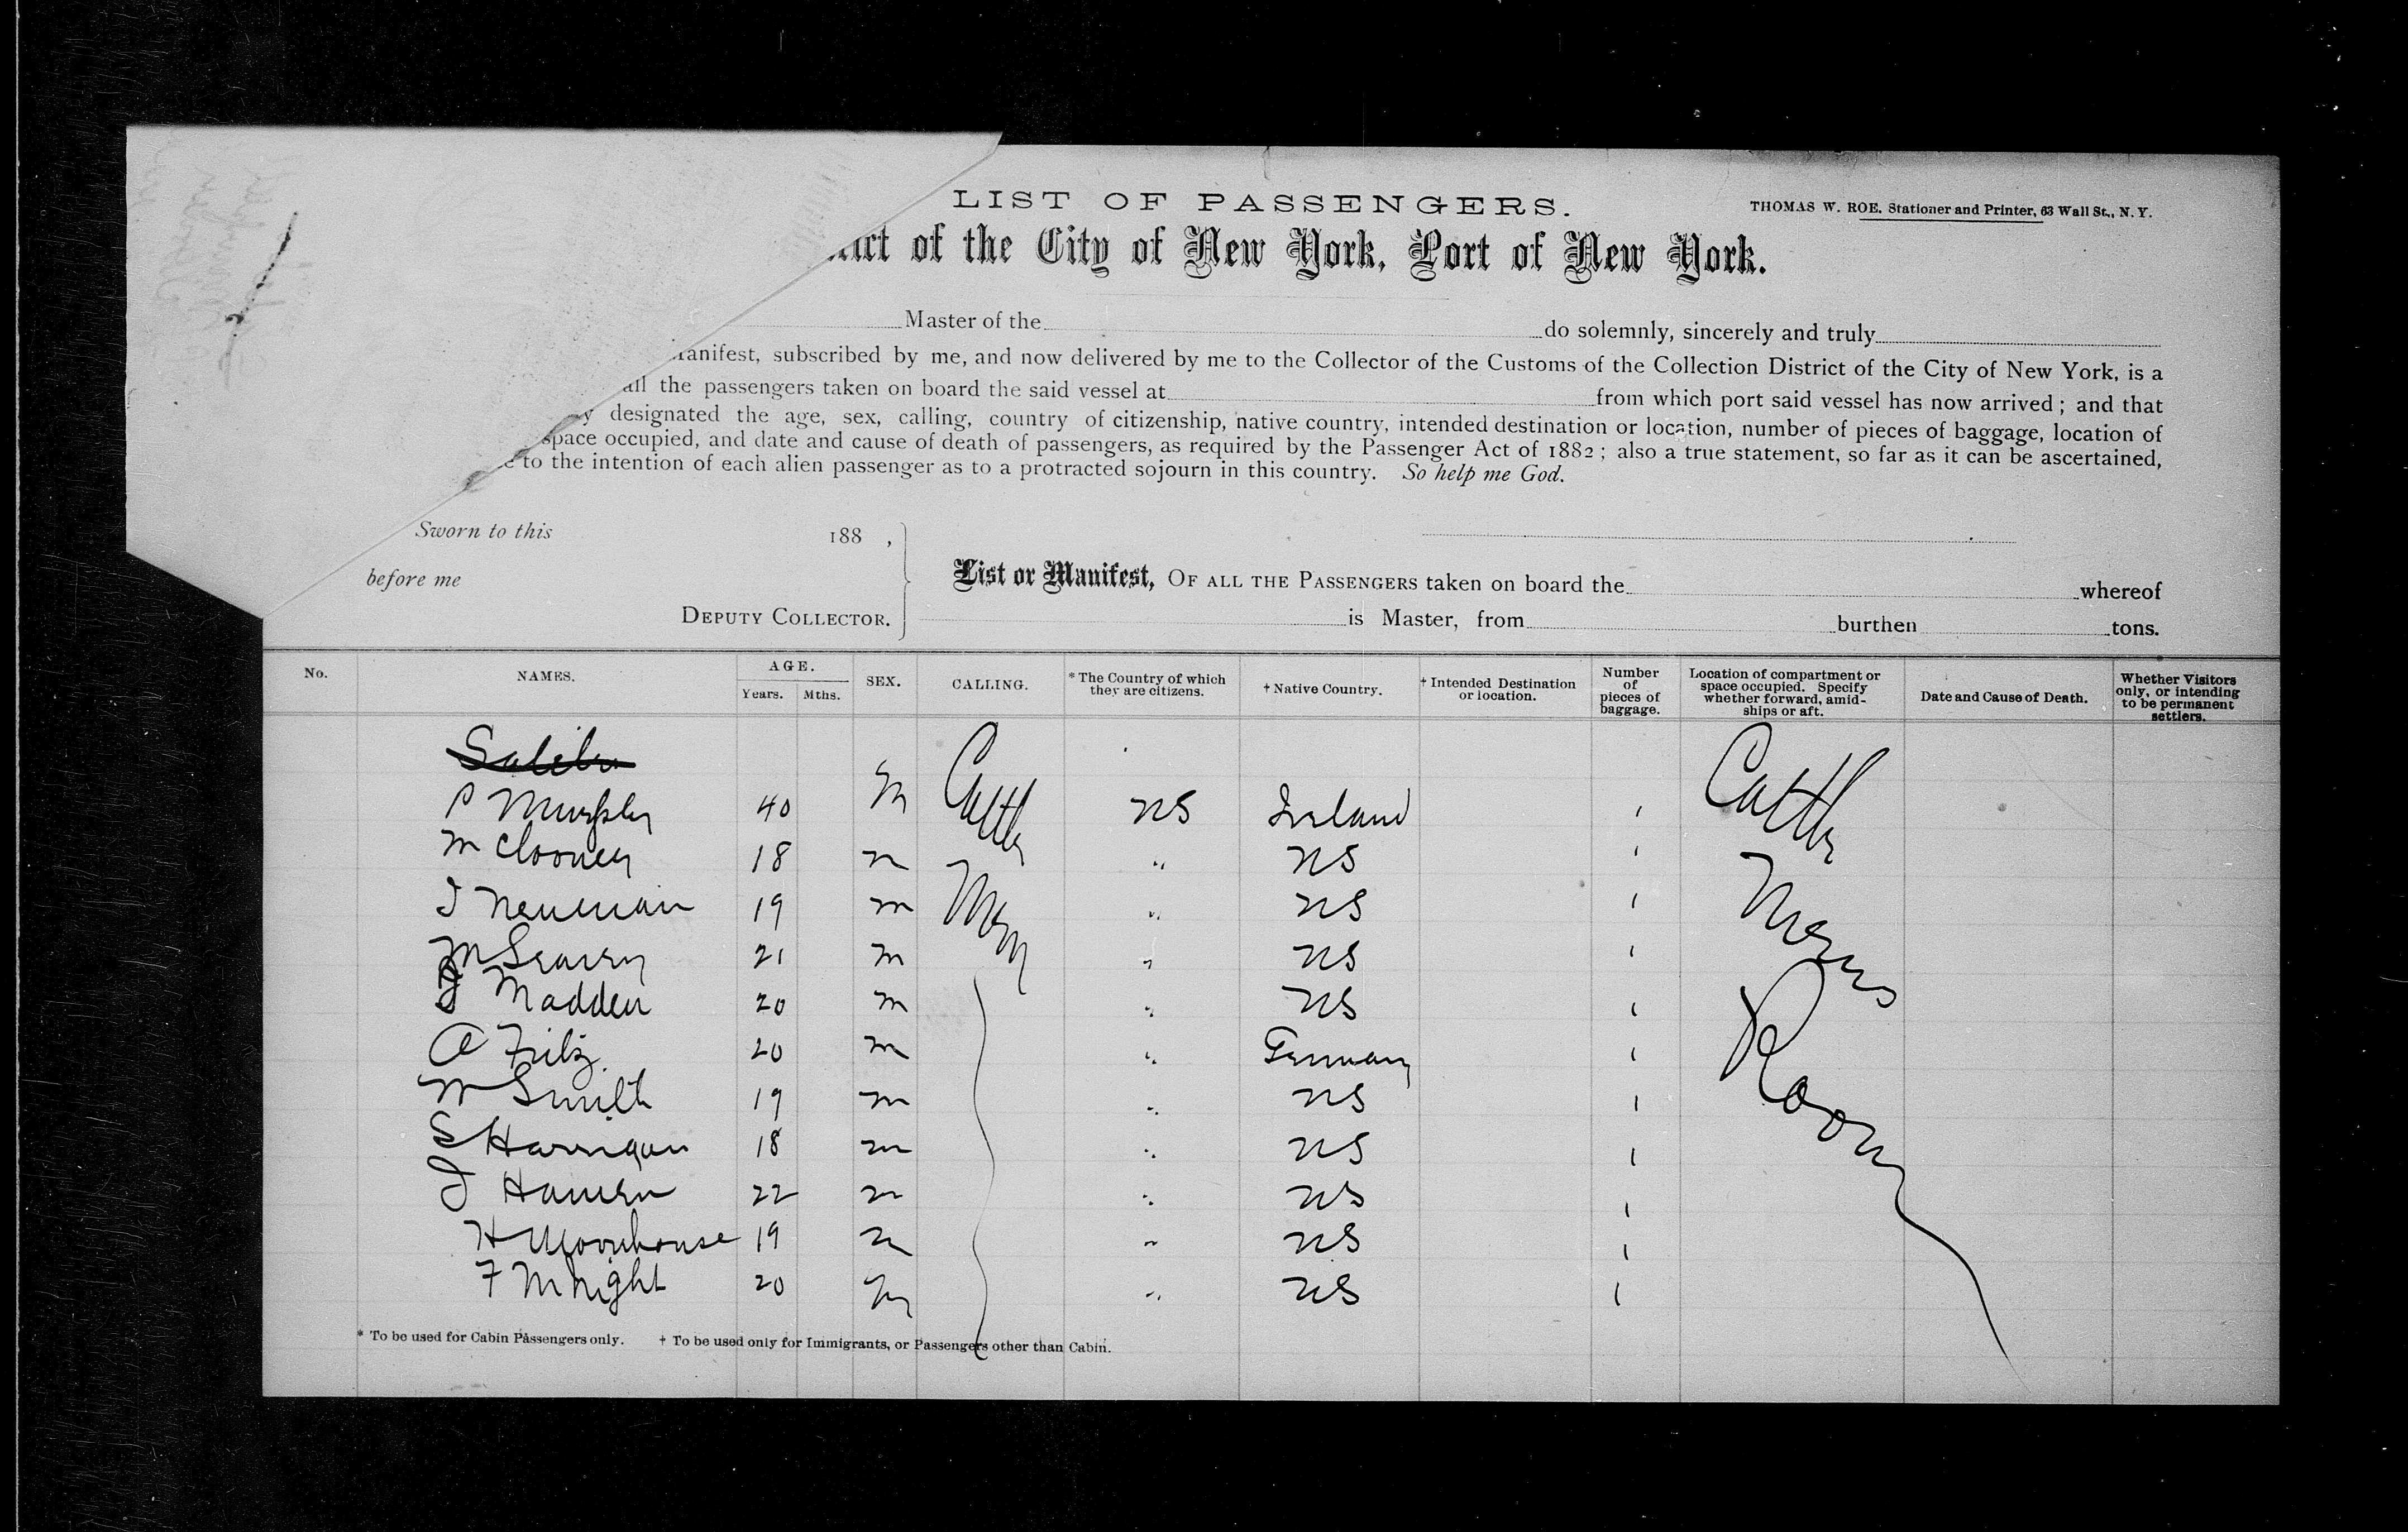 LIST OF PASSENGERS.
THOMAS W. ROE, Stationer and Printer, 63 Wall St., N. Y.
of the City of New York, Port of New York.
Master of the do solemnly, sincerely and truly
anifest, subscribed by me, and now delivered by me to the Collector of the Customs of the Collection District of the City of New York, is a
all the passengers taken on board the said vessel at from which port said vessel has now arrived; and that
y designated the age, sex, calling, country of citizenship, native country, intended destination or location, number of pieces of baggage, location of
space occupied, and date and cause of death of passengers, as required by the Passenger Act of 1882; also a true statement, so far as it can be ascertained,
to the intention of each alien passenger as to a protracted sojourn in this country. So help me God.
Sworn to this 188 ,
before me
DEPUTY COLLECTOR.
List or Manifest, OF ALL THE PASSENGERS taken on board the whereof
is Master, from burthen tons.
No. NAMES. AGE. Years. Mths. SEX. CALLING. * The Country of which they are citizens. † Native Country. † Intended Destination or location. Number of pieces of baggage. Location of compartment or space occupied. Specify whether forward, amidships or aft. Date and Cause of Death. Whether Visitors only, or intending to be permanent settlers.
P Murphy 40 M Cattle US Ireland 1 Cattle
M Clooney 18 m " US 1
J Newman 19 m Men " US 1 Mens
M 21 m " US 1
J Madden 20 m " US 1
A Fritz 20 m " Germany 1 Room
W Smith 19 m " US 1
S Harrigan 18 m " US 1
J Hansen 22 m " US 1
H Moorehouse 19 m " US 1
F 20 m " US 1
* To be used for Cabin Passengers only. † To be used only for Immigrants, or Passengers other than Cabin.